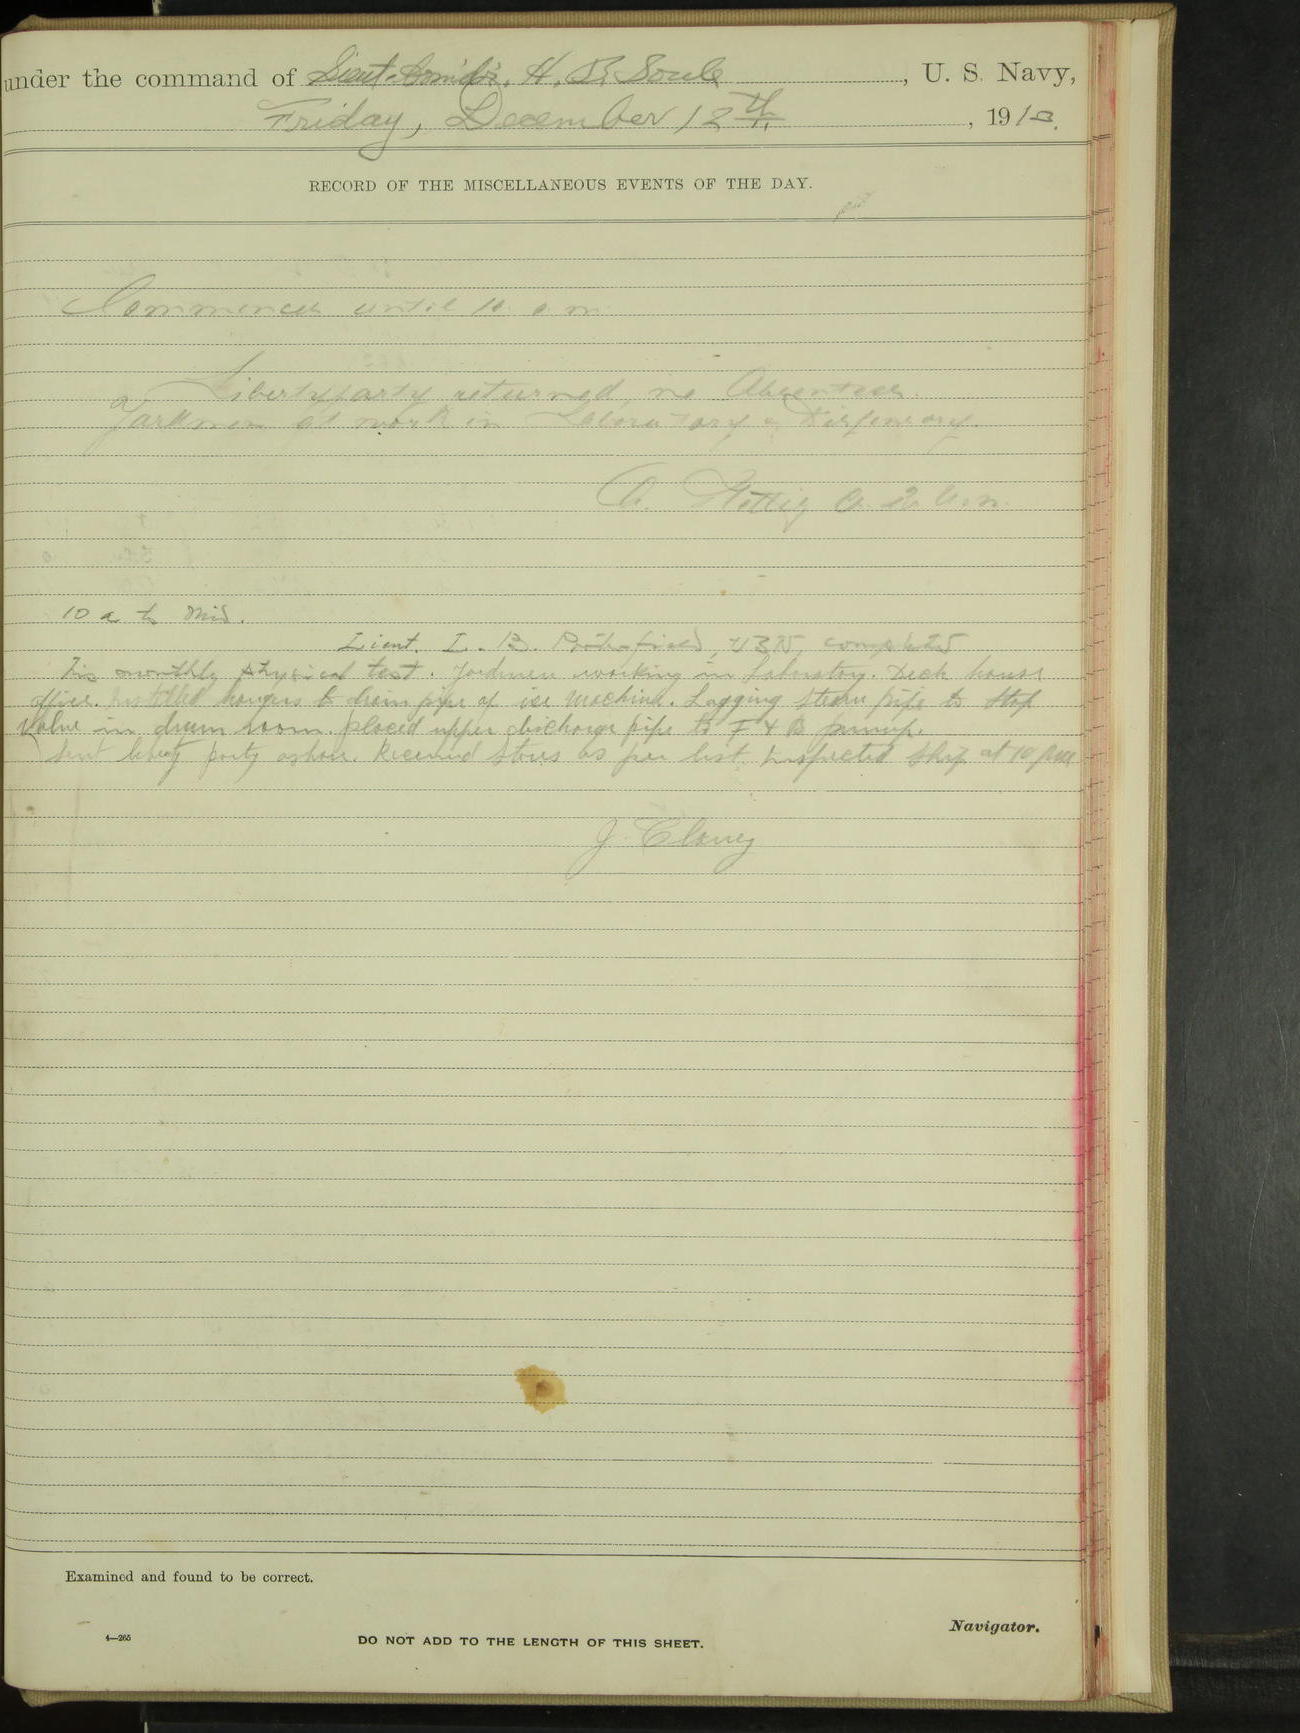 under the command of Lieut. Comd'r. H. B. Soule, U. S. Navy,
Friday, December 12th, 1913.
RECORD OF THE MISCELLANEOUS EVENTS OF THE DAY.
Commences until 10. a. m.
Liberty party returned, no Absentees.
Yardmen at work in Laboratory & Dispensary.
10 a to Mid.
Lieut. I. B. USN, completed
his monthly physical test. Yardmen working in Laboratory. Deck house
office. hangers to drain pipe of ice machine. Lagging steam pipe to stop
valve in drum room. placed upper discharge pipe to F & B pump.
Sent liberty party ashore. Received stores as per list. Inspected ship at 10 p.m.
J. Clancy
Examined and found to be correct.
Navigator.
4—265
DO NOT ADD TO THE LENGTH OF THIS SHEET.